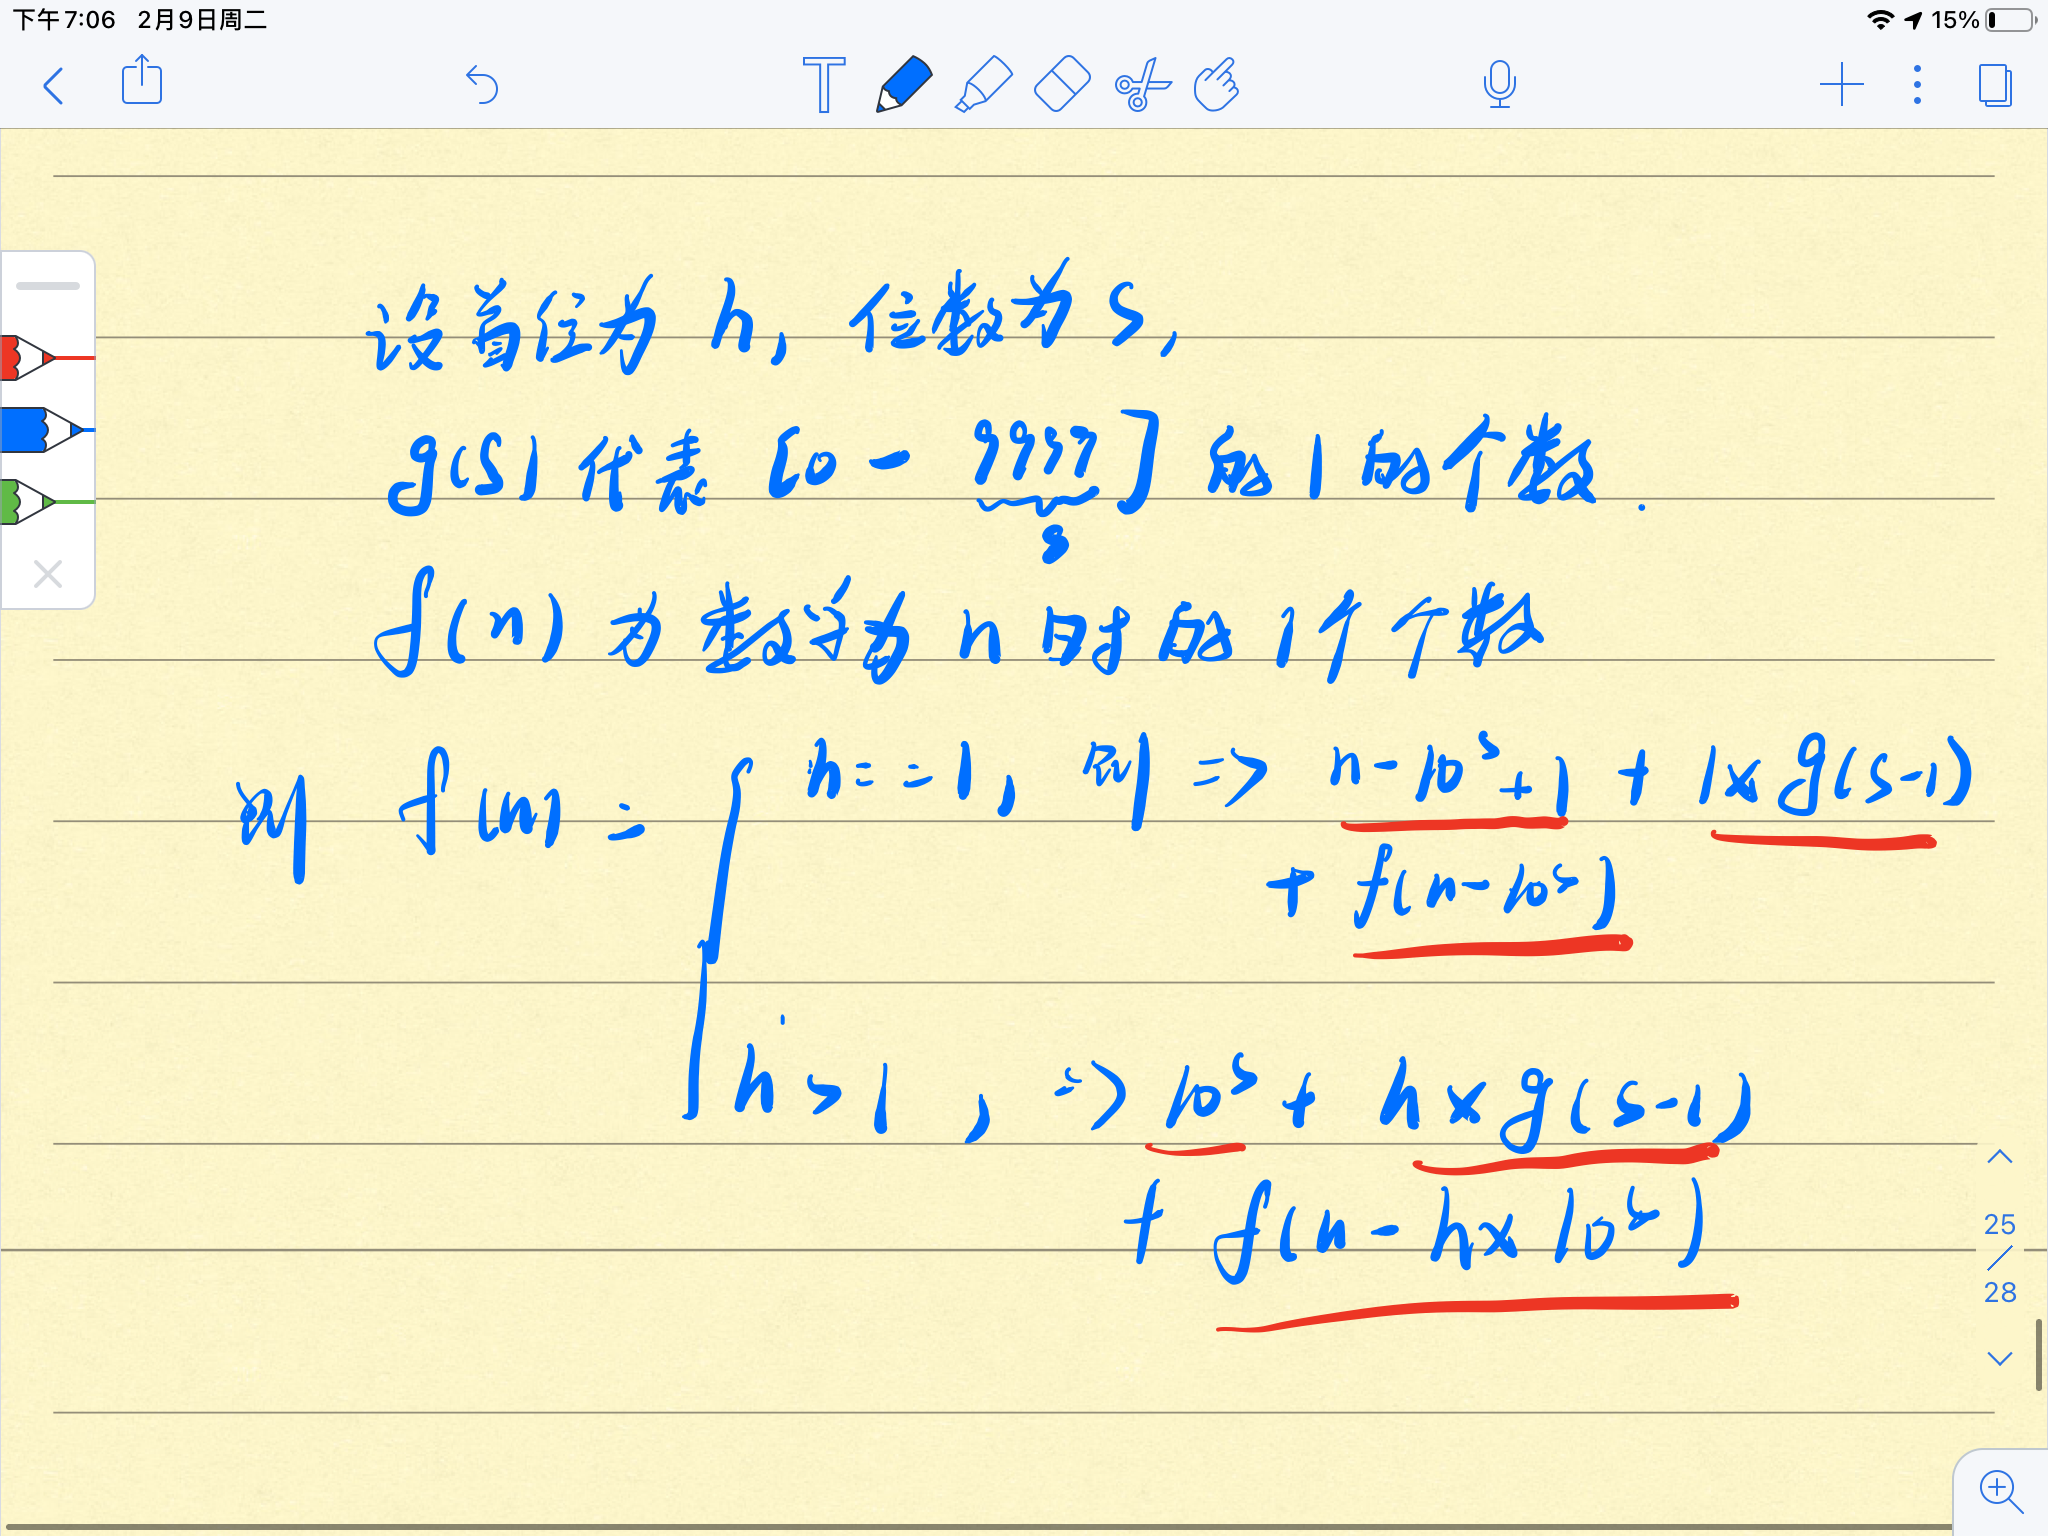 下午7:06 2月9日周二
15%
T
设首位为 h, 位数为 s,
g(s) 代表 [0 - 9999] 的 1 的个数.
s
f(n) 为数字为 n 时的 1个 个数
则 f(n) = h==1, 则 => n-10^s+1 + 1×g(s-1)
+ f(n-10^s)
h>1, => 10^s + h×g(s-1)
+ f(n-h×10^s)
25
/
28